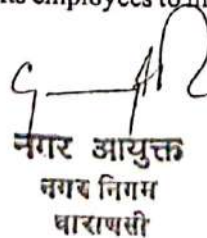 its employees to
नगर आयुक्त
नगर निगम
वाराणसी